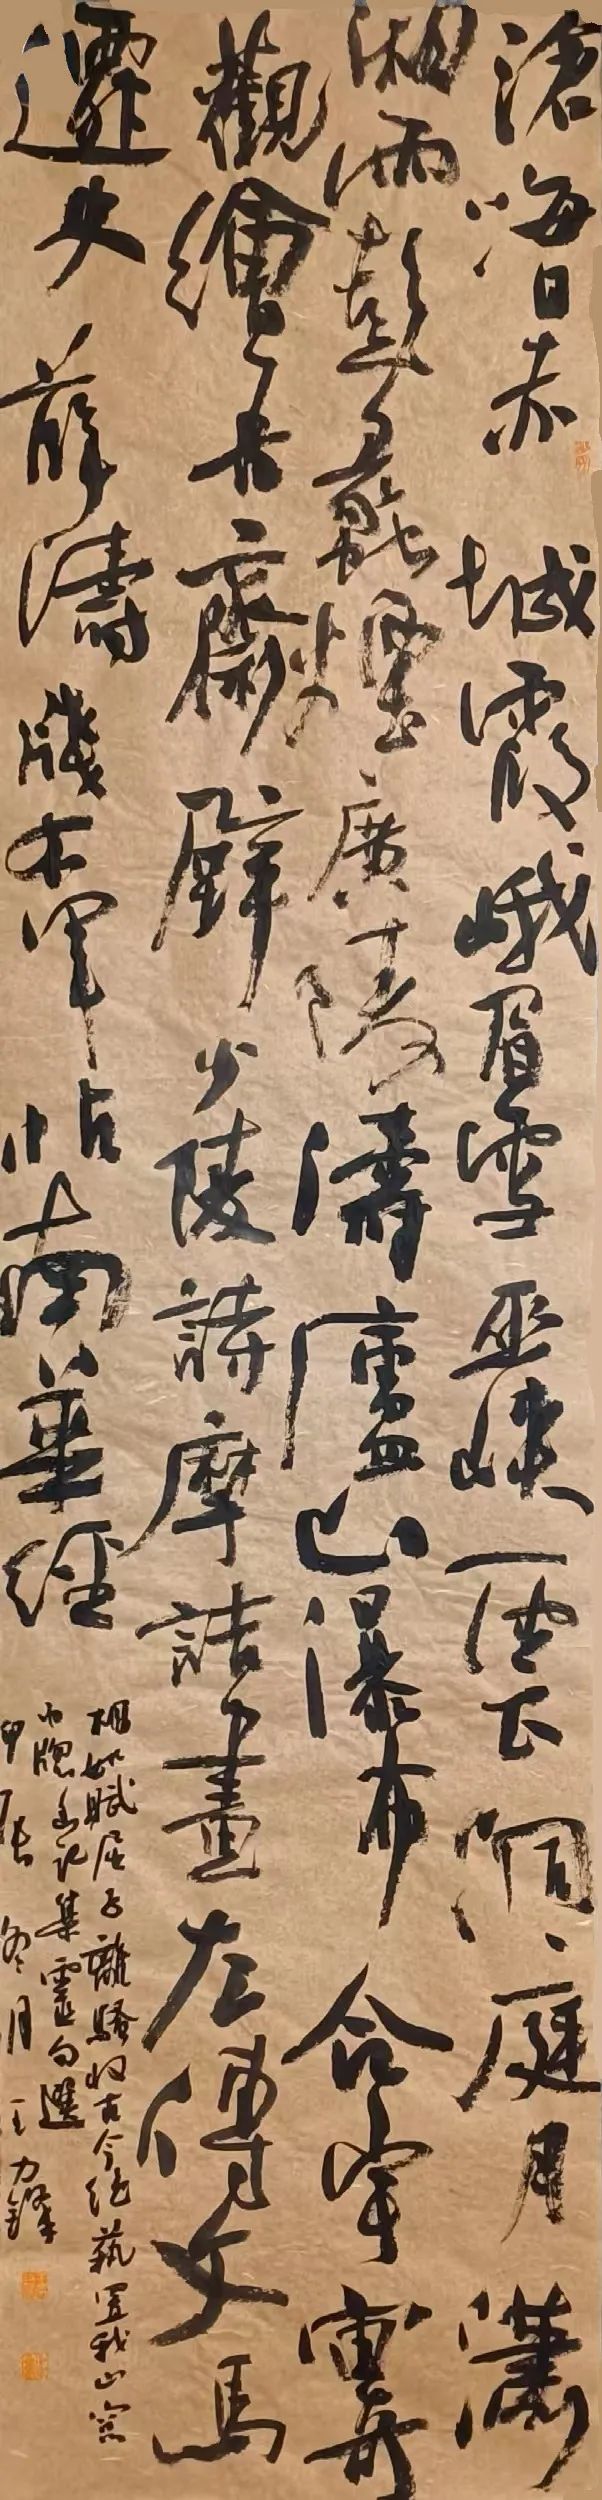 滄海日赤城霞峨眉雪巫峽雲洞庭月瀟
湘雨彭蠡煙廣陵濤廬山瀑布合宇宙奇
觀繪吾齋壁少陵詩摩詰畫左傳文馬
遷史薛濤牋右軍帖南華經
相如賦屈子離騷收古今絕藝置我山窗
小牕幽記集靈句選
甲辰冬月王力鋒